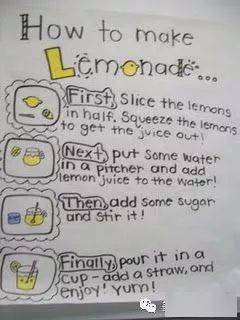 How to make
Lemonade...
First, Slice the lemons
in half. Squeeze the lemons
to get the juice out!
Next, put some water
in a pitcher and add
lemon juice to the water!
Then, add some sugar
and stir it!
Finally, pour it in a
cup - add a straw, and
enjoy! Yum!